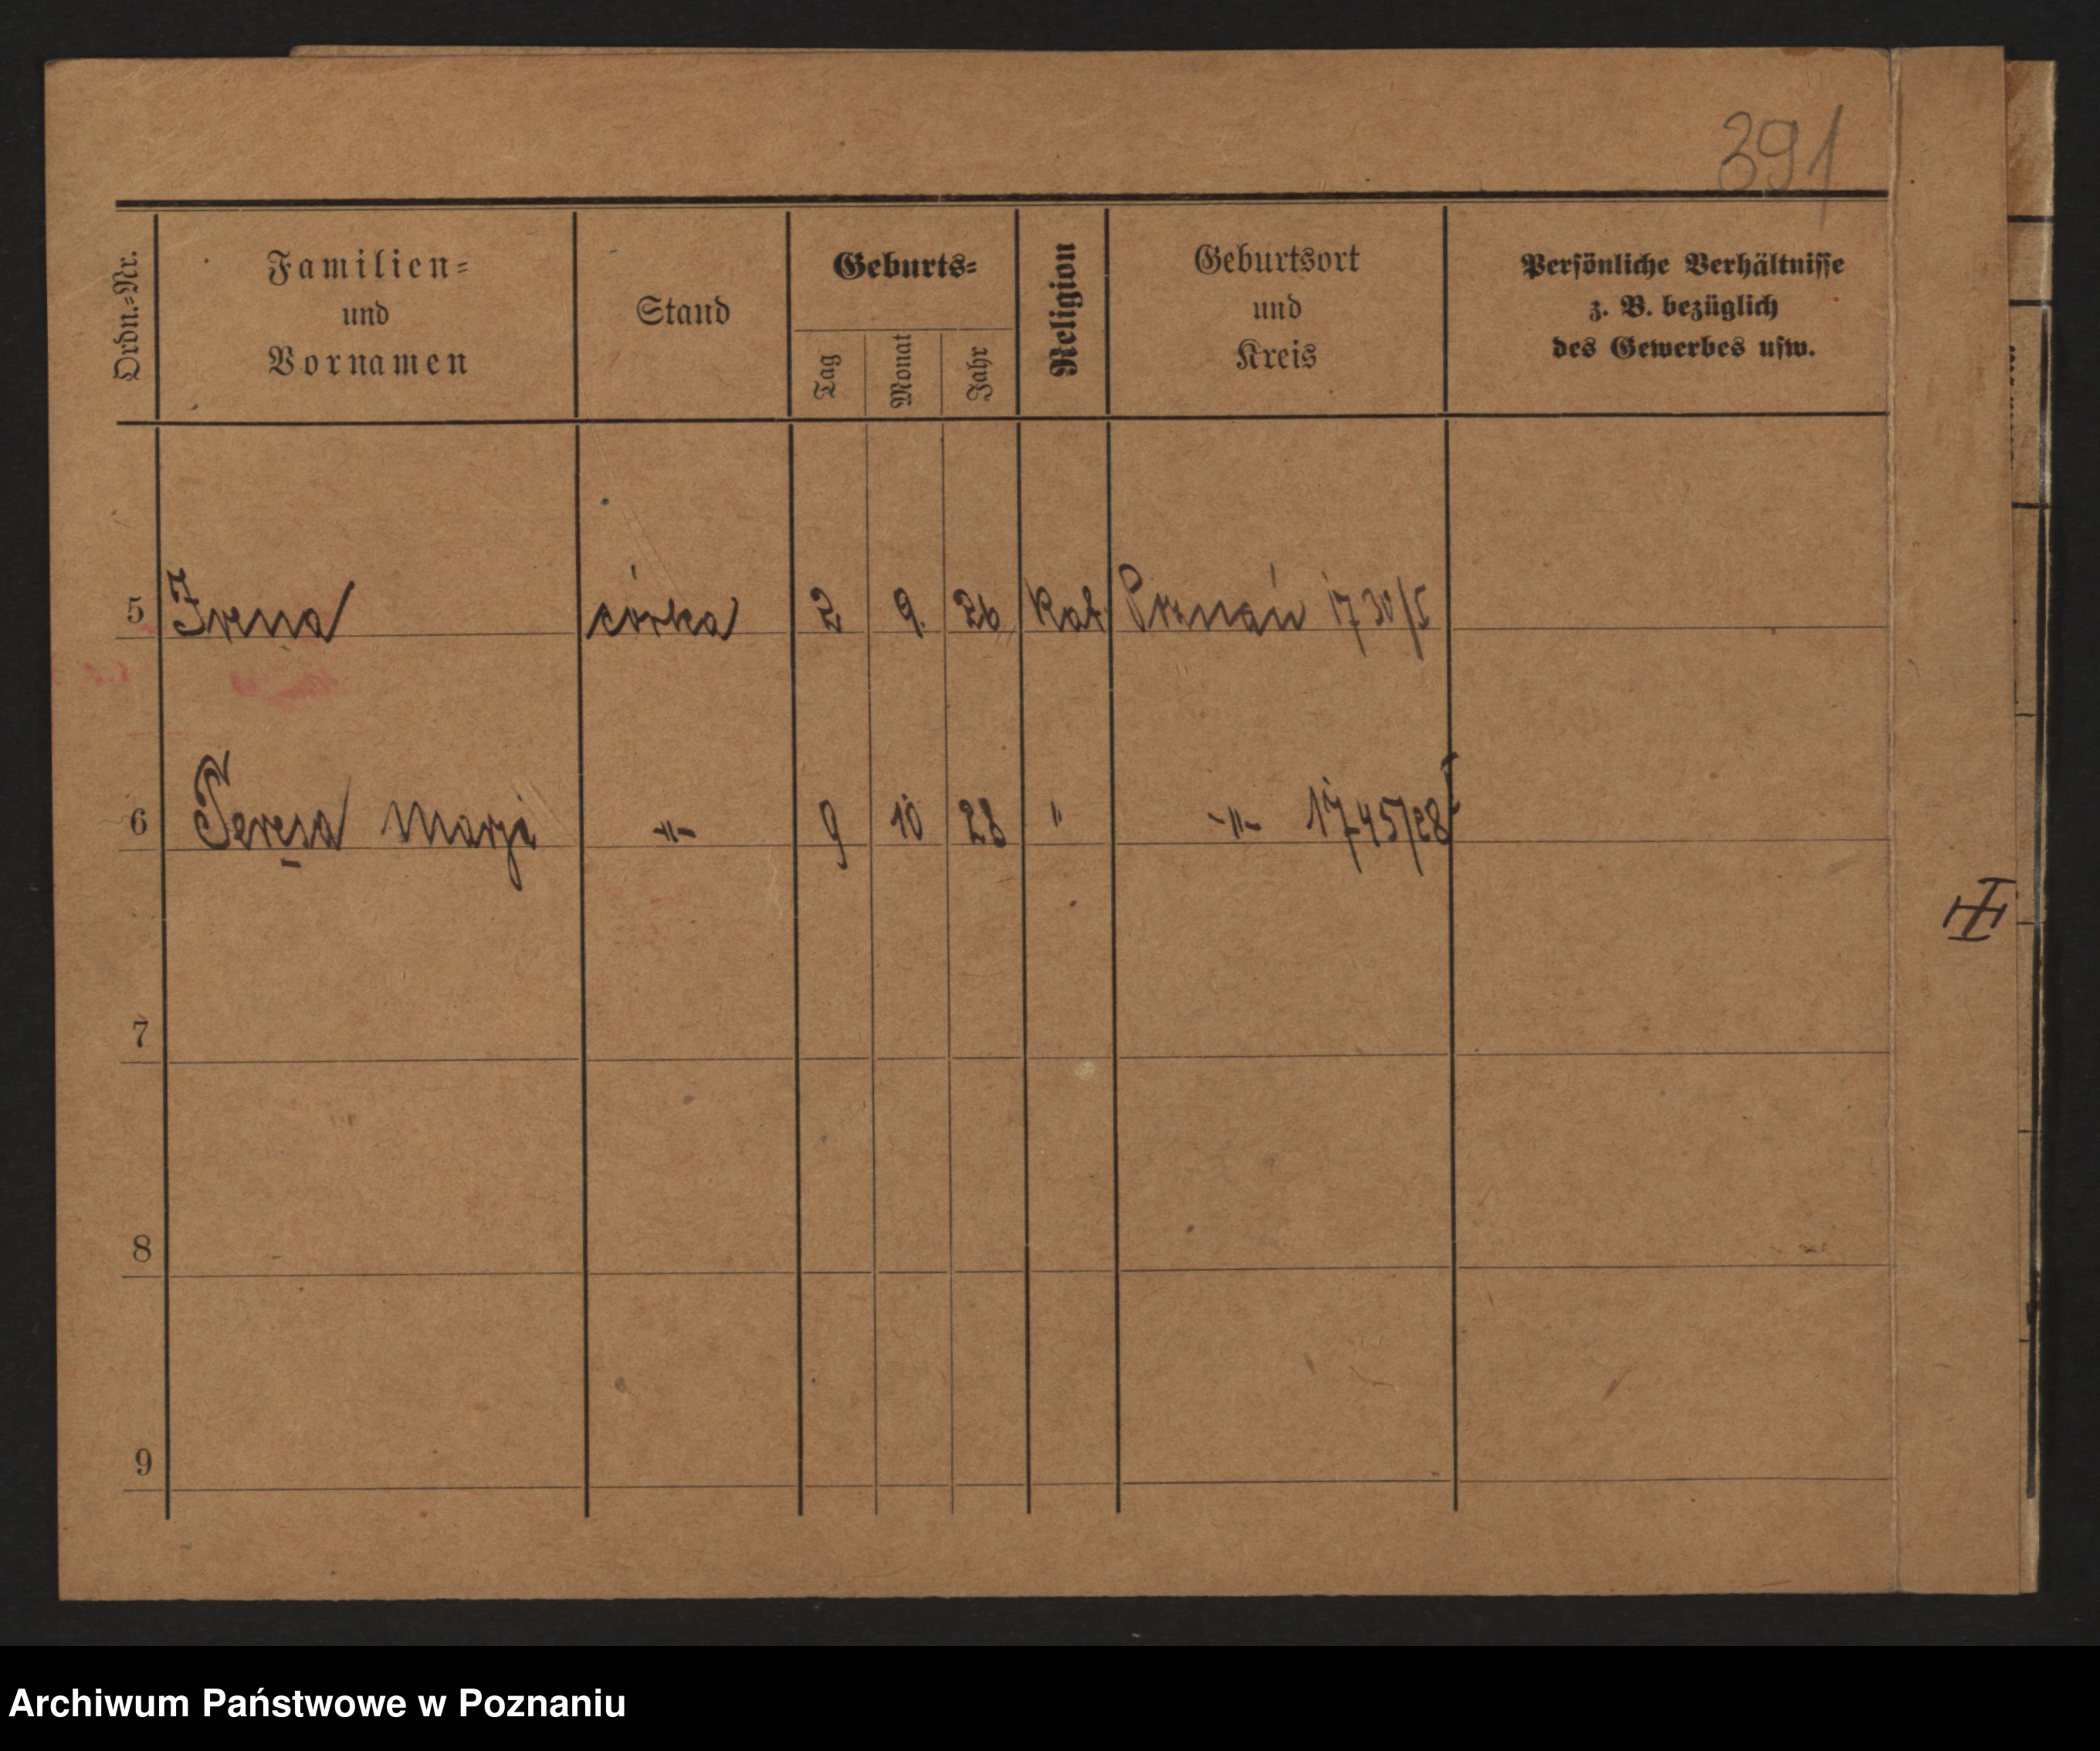 391
Ordn.=Nr.
Familien=
und
Vornamen
Stand
Geburts=
Tag
Monat
Jahr
Religion
Geburtsort
und
Kreis
Persönliche Verhältnisse
z. B. bezüglich
des Gewerbes usw.
5 Irena córka 2 9. 26 Kat. Poznań
6 Teresa Marja -"- 9 10 28 " -"- 1745/28
7
8
9
Archiwum Państwowe w Poznaniu